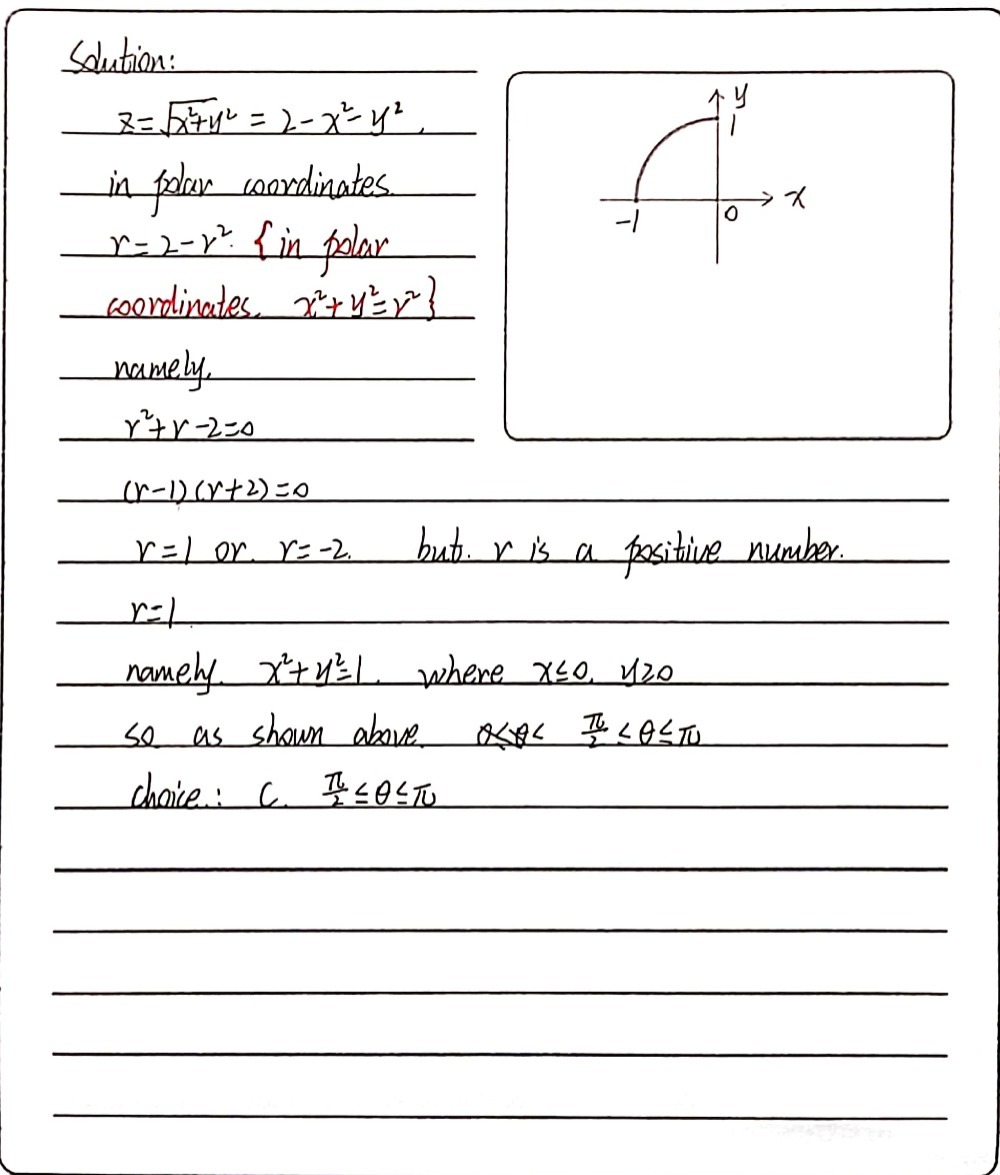 Solution:
z=√x²+y² = 2-x²-y².
in polar coordinates.
r=2-r². {in polar
coordinates. x²+y²=r²}
namely.
r²+r-2=0
(r-1)(r+2)=0
r=1 or. r=-2. but. r is a positive number.
r=1.
namely. x²+y²=1. where x≤0. y≥0
so as shown above. π/2 ≤θ≤π
choice.: C. π/2 ≤θ≤π
y
1
x
-1
0